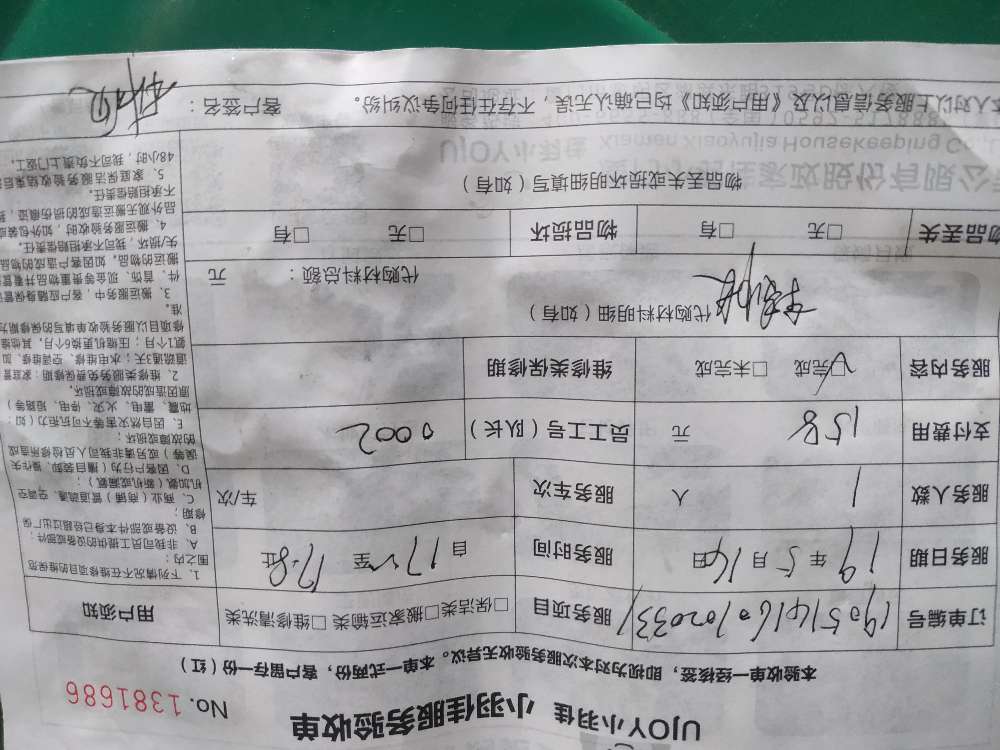 UjOY小羽佳 小羽佳服务验收单
No. 1381686
本验收单一经接签，即视为对本次服务验收无异议。本单一式两份，客户留存一份（红）
订单编号 服务项目 □保洁类□搬家运输类 □维修清洗类 用户须知
服务日期 19 年 5 月 16 日 服务时间 自 至 止
服务人数 1 人 服务车次 车/次
支付费用 158 元 员工工号（队长） 0002
服务内容 □完成 □未完成 维修类保修期
代购材料明细（如有）
代购材料总额： 元
物品丢失 □无 □有 物品损坏 □无 □有
物品丢失或损坏明细填写（如有）
人对以上服务信息以及《用户须知》均已确认无误，不存在任何争议纠纷。 客户签名：
1、下列情况不在维修项目的维保范
围之内：
A、非我司员工提供的设备或部件；
B、设备或部件本身已经超过出厂保
修期；
C、商业（商铺）管道疏通、空调空
机加氨（新机或漏氨）；
D、因客户行为（擅自装卸、操作失
误等）或另请非我司人员检修所造成
的故障或损坏；
E、因自然灾害等不可抗力（如：
地震、雷电、火灾、停电、短路等）
原因造成的故障或损坏。
2、维修类服务免费保修期：家庭管
道疏通3天；水电维修、空调维修、加
氨1个月；压缩机更换6个月，其他维
修项目以服务验收单填写的保修期为
准。
3、搬运服务中，客户应随身保管证
件、首饰、现金等贵重物品并看管
搬运的物品，如因客户造成的物品丢
失/损坏，我司不承担赔偿责任。
4、搬运服务验收时，如外包装或
品外观无搬运造成的损伤痕迹，我
不承担赔偿责任。
5、家庭保洁服务验收结束后
48小时，我司不负责上门返工。